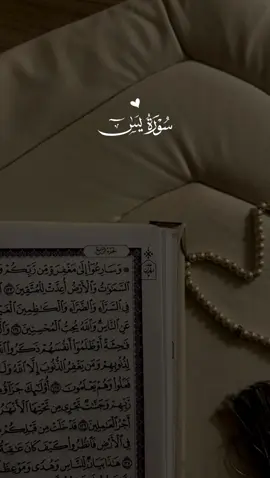 سُورَةُ يسٓ
وَسَارِعُوٓا۟ إِلَىٰ مَغْفِرَةٍ مِّن رَّبِّكُمْ
ٱلسَّمَٰوَٰتُ وَٱلْأَرْضُ أُعِدَّتْ لِلْمُتَّقِينَ
فِى ٱلسَّرَّآءِ وَٱلضَّرَّآءِ وَٱلْكَٰظِمِينَ
عَنِ ٱلنَّاسِ وَٱللَّهُ يُحِبُّ ٱلْمُحْسِنِينَ
فَٰحِشَةً أَوْ ظَلَمُوٓا۟ أَنفُسَهُمْ ذَكَرُوا۟
لِذُنُوبِهِمْ وَمَن يَغْفِرُ ٱلذُّنُوبَ إِلَّا ٱللَّهُ
فَعَلُوا۟ وَهُمْ يَعْلَمُونَ أُو۟لَٰٓئِكَ
رَّبِّهِمْ وَجَنَّٰتٌ تَجْرِى مِن تَحْتِهَا ٱلْأَنْهَٰرُ
أَجْرُ ٱلْعَٰمِلِينَ قَدْ خَلَتْ مِن قَبْلِكُمْ
فِى ٱلْأَرْضِ فَٱنظُرُوا۟ كَيْفَ كَانَ
هَٰذَا بَيَانٌ لِّلنَّاسِ وَهُدًى